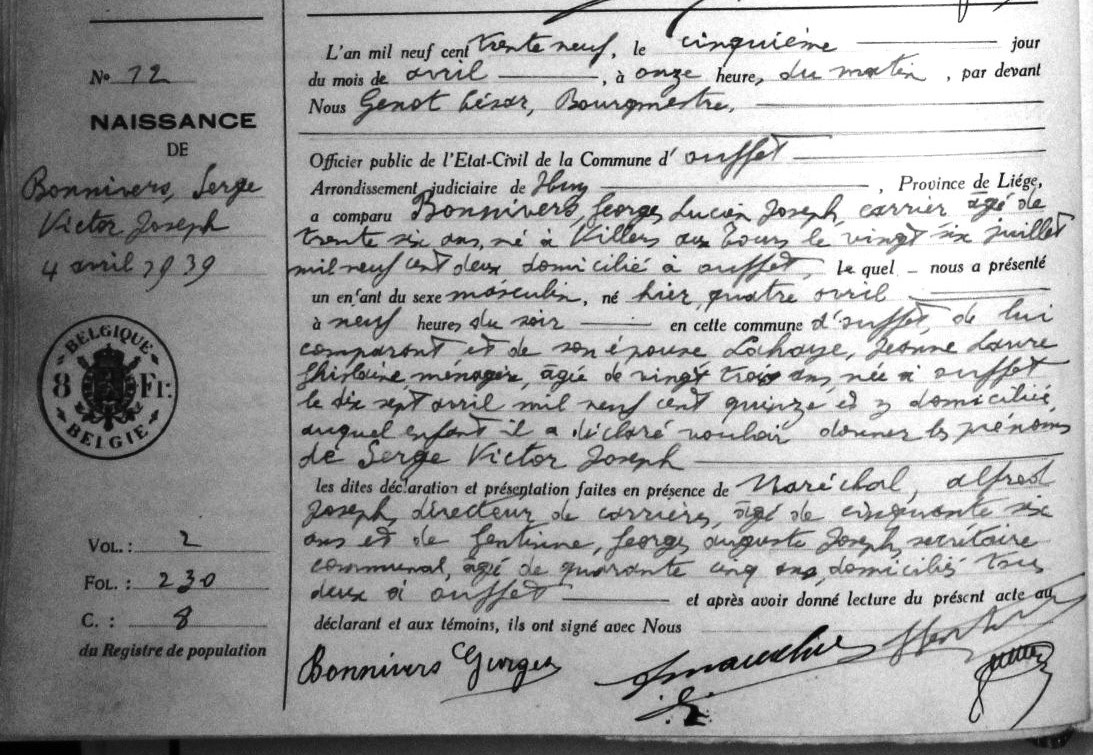 N° 12
NAISSANCE
DE
Bonnivers, Serge
Victor Joseph
4 avril 1939
BELGIQUE
8 Fr.
BELGIE
VOL. : 2
FOL. : 230
C. : 8
du Registre de population
L'an mil neuf cent trente neuf, le cinquième jour
du mois de avril, à onze heures du matin, par devant
Nous Genot César, Bourgmestre,
Officier public de l'Etat-Civil de la Commune d' ouffet
Arrondissement judiciaire de Huy, Province de Liége,
a comparu Bonnivers, Georges Lucien Joseph, carrier âgé de
trente six ans, né à Villers aux Tours le vingt six juillet
mil neuf cent deux domicilié à ouffet, lequel nous a présenté
un enfant du sexe masculin, né hier, quatre avril
à neuf heures du soir en cette commune d'ouffet, de lui
comparant et de son épouse Lahaye, Jeanne Laure
Ghislaine, ménagère, âgée de vingt trois ans, née à ouffet
le dix sept avril mil neuf cent quinze et y domiciliée,
auquel enfant il a déclaré vouloir donner les prénoms
de Serge Victor Joseph
les dites déclaration et présentation faites en présence de Maréchal, alfred
Joseph, directeur de carrières, âgé de cinquante six
ans et de Gentinne, Georges auguste Joseph, secrétaire
communal, âgé de quarante cinq ans, domiciliés tous
deux à ouffet et après avoir donné lecture du présent acte au
déclarant et aux témoins, ils ont signé avec Nous
Bonnivers Georges